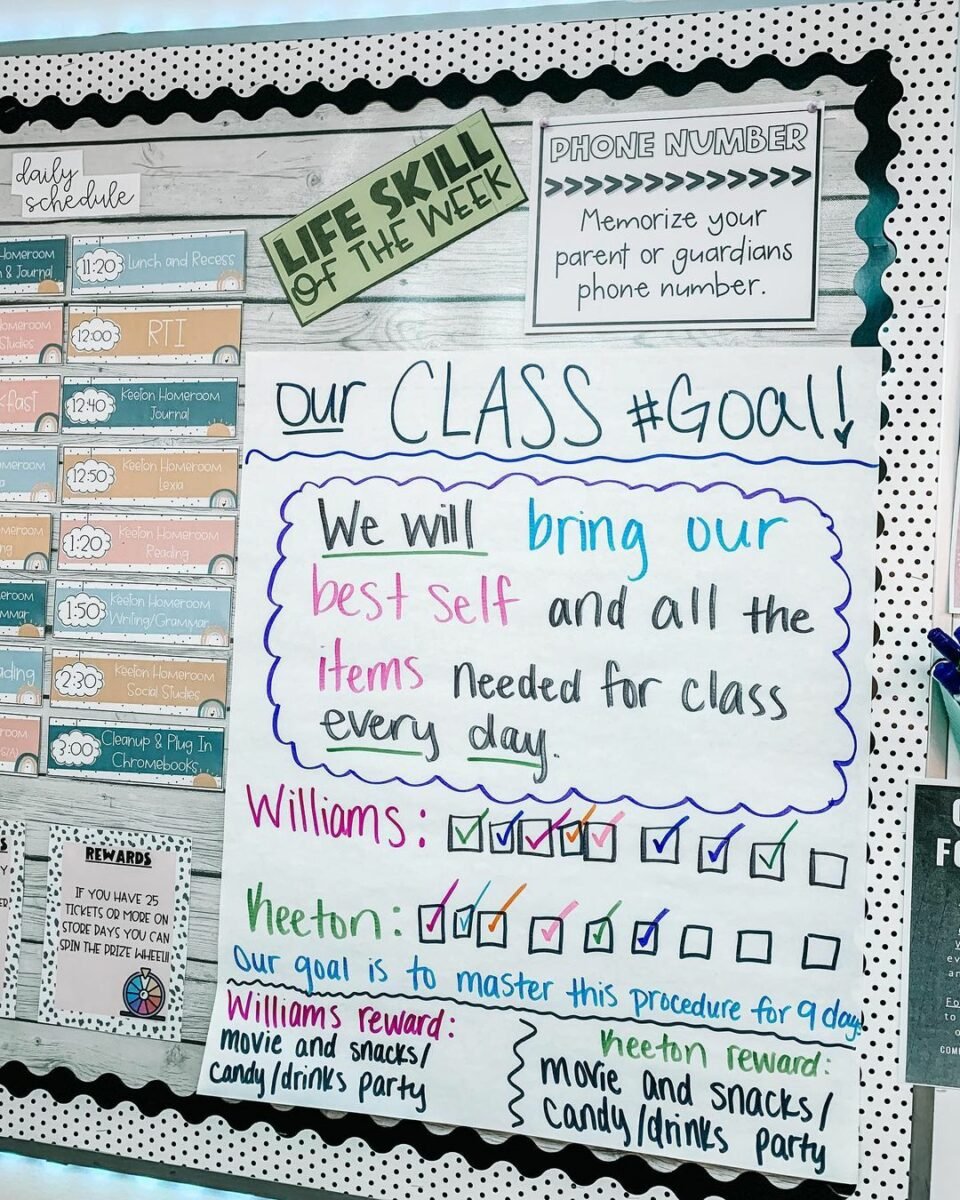 daily
schedule
LIFE SKILL
OF THE WEEK
PHONE NUMBER
>>>>>>>>>>>>>
Memorize your
parent or guardians
phone number.
11:20 Lunch and Recess
12:00 RTI
12:40 Keeton Homeroom
Journal
12:50 Keeton Homeroom
Lexia
1:20 Keeton Homeroom
Reading
1:50 Keeton Homeroom
Writing/Grammar
2:30 Keeton Homeroom
Social Studies
3:00 Cleanup & Plug In
Chromebooks
our CLASS #Goal!
We will bring our
best self and all the
items needed for class
every day.
Williams:
Keeton:
Our goal is to master this procedure for 9 days!
Williams reward:
movie and snacks/
candy/drinks party
Keeton reward:
movie and snacks/
candy/drinks party
REWARDS
IF YOU HAVE 25
TICKETS OR MORE ON
STORE DAYS YOU CAN
SPIN THE PRIZE WHEEL!!